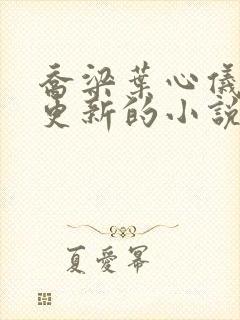 喬梁葉心儀
更新的小說
夏愛冪